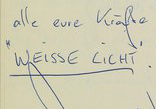 alle eure Kräfte
"WEISSE LICHT"